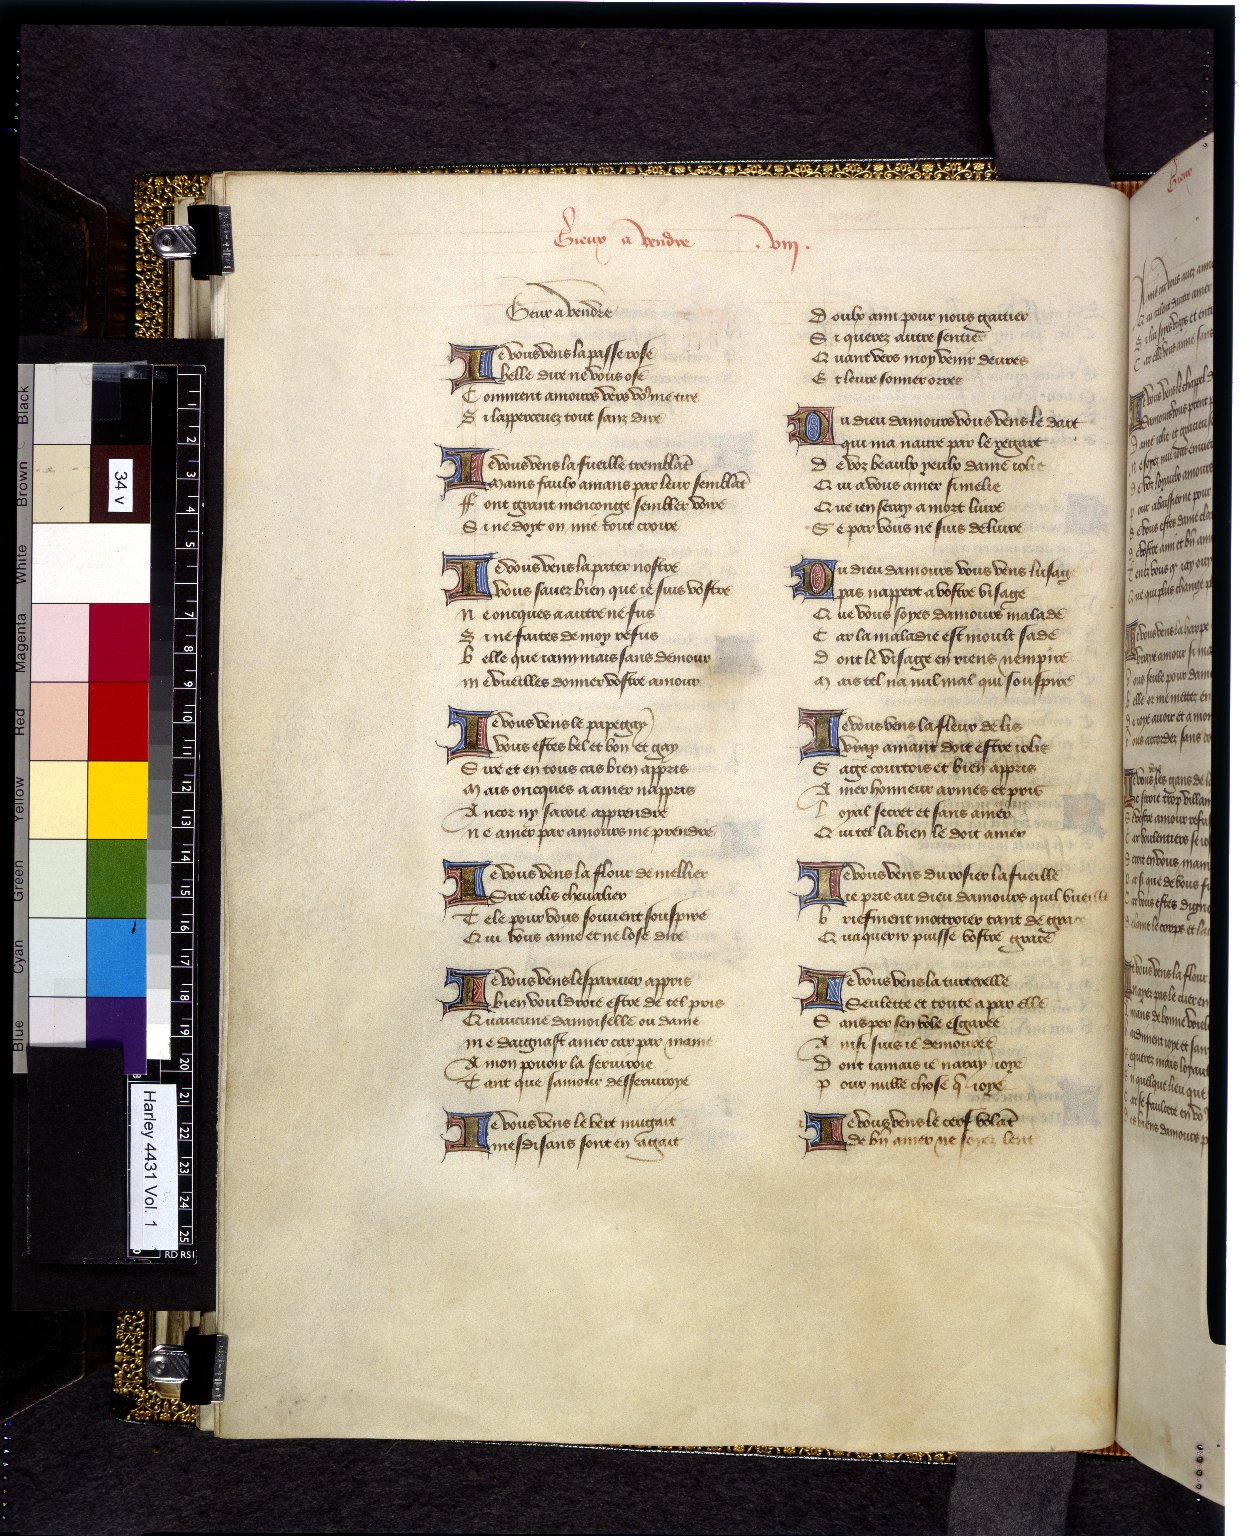 Gieux a vendre .viii.
Gieux a vendre
Je vous vens la passe rose
belle dire ne vous ose
Comment amours vers vo9 me tire
Si lappercevez tout sanz dire
Je vous vens la fueille tremblāt
Mains faulx amans par leur semblāt
ffont grant menconge sembler voire
Si ne doyt on mie tout croire
Je vous vens la pater nostre
vous savez bien que ie suis vostre
Ne oncques a autre ne fus
Si ne faites de moy refus
belle que iaim mais sans demour
me vueilles donner vostre amour
Je vous vens le papegay
vous estes bel et bon et gay
Sire et en tous cas bien appris
Mais oncques a amer nappris
Ancor ny saroie apprendre
ne amer par amours me prendre
Je vous vens la flour de mellier
Sire iolis chevalier
Tele pour vous souvent souspire
Qui vous aime et ne lose dire
Je vous vens lesparvier appris
bien vouldroie estre de tel pris
Quaucune damoiselle ou dame
me daignast amer car par mame
A mon povoir la serviroie
Tant que samour desserviroye
Je vous vens le vert mugait
mesdisans sont en agait
Doulx ami pour nous gaitier
Si querez autre sentier
Quant vers moy venir devres
Et leure sonner orres
Du dieu damours vous vens le dart
qui ma navre par le regart
de voz beaulx yeulx dame iolie
Qui a vous amer si me lie
Que ien seray a mort livre
Se par vous ne suis delivre
Du dieu damours vous vens lusage
pas nappert a vostre visage
Que vous soyes damours malade
Car la maladie est moult sade
dont le visage en riens nempire
Mais tel na nul mal qui souspire
Je vous vens la fleur de lis
vray amant doit estre iolis
Sage courtois et bien appris
Amer honneur armes et pris
loyal secret et sans amer
Qui tel la bien le doit amer
Je vous vens du rosier la fueille
ie prie au dieu damours quil vueille
briefment mottroier tant de grace
Quaquerir puisse vostre grace
Je vous vens la turterelle
Seulette et toute a par elle
Sans per sen vole esgaree
Ainsi suis ie demouree
Dont iamais ie naray ioye
pour nulle chose q̄ ioye
Je vous vens le cerf volāt
de bn̄ amer ne soyez lent
34 v
Harley 4431 Vol. 1
Black
Brown
White
Magenta
Red
Yellow
Green
Cyan
Blue
1
2
3
4
5
7
8
9
10
11
12
13
14
15
16
17
18
19
20
21
22
23
24
25